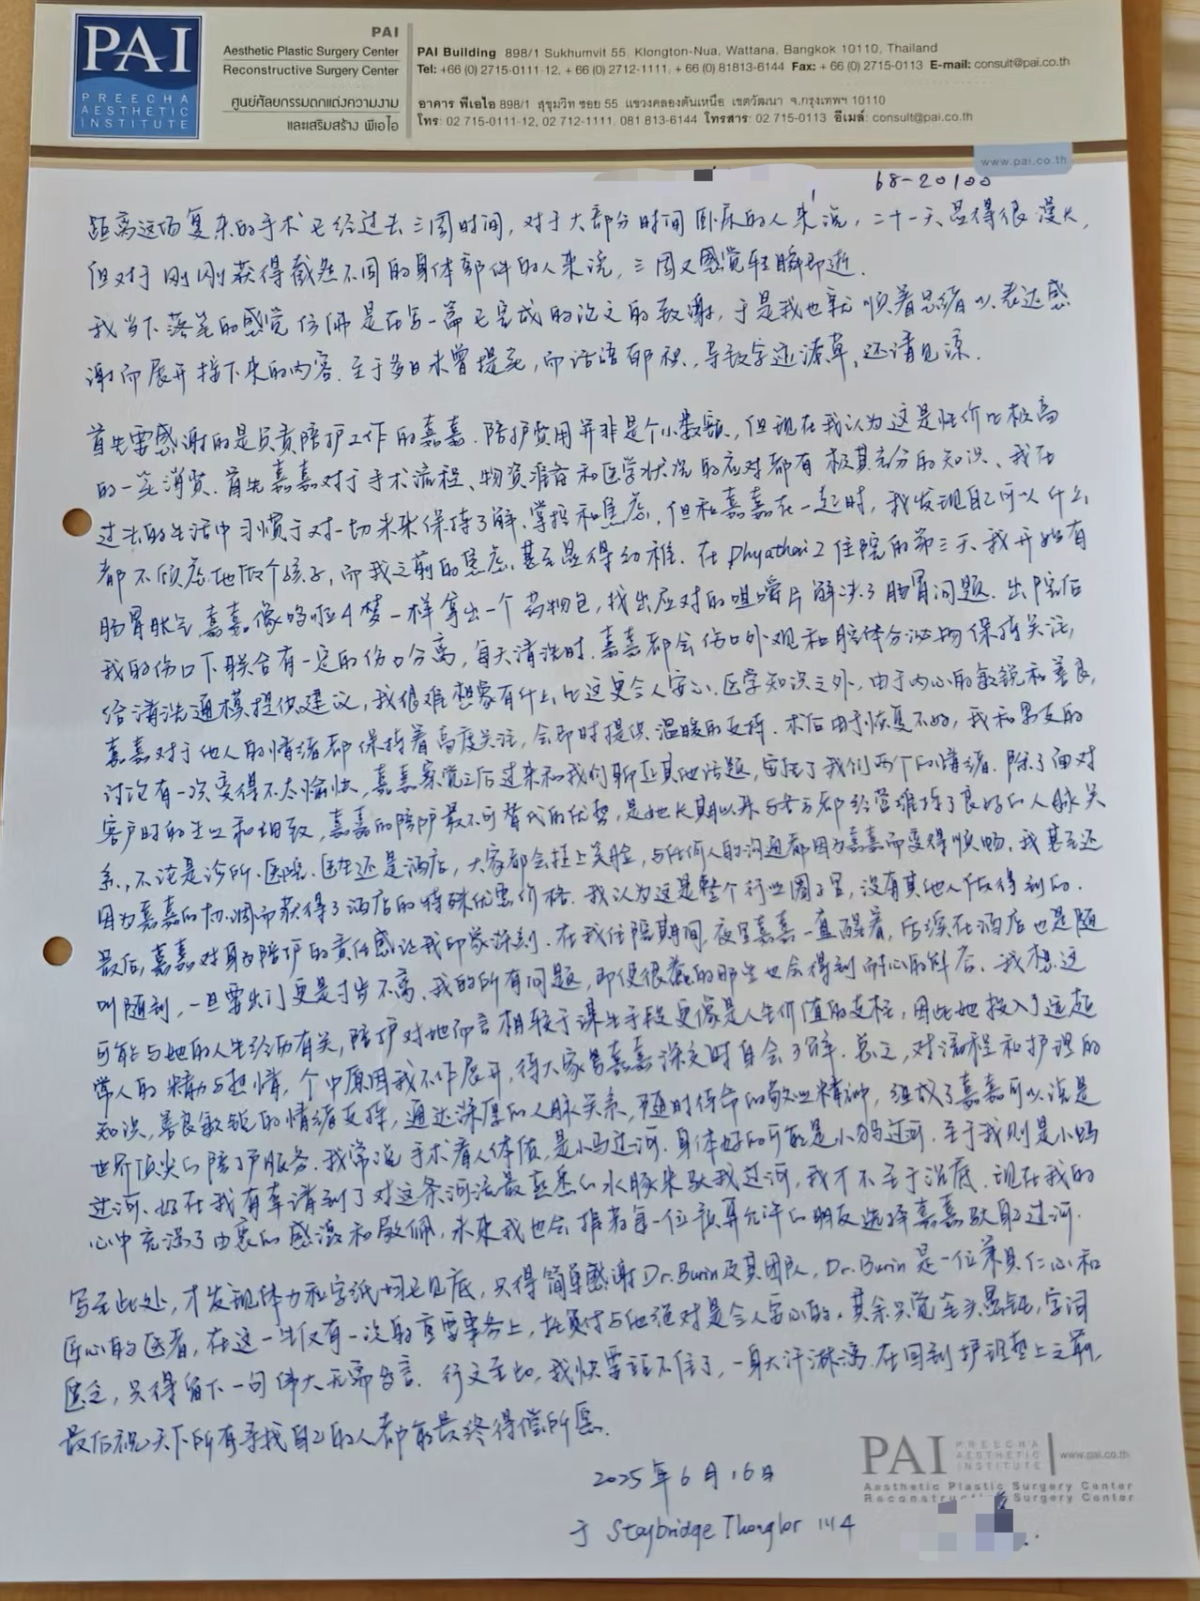 PAI
PREECHA
AESTHETIC
INSTITUTE
PAI
Aesthetic Plastic Surgery Center
Reconstructive Surgery Center
ศูนย์ศัลยกรรมตกแต่งความงาม
และเสริมสร้าง พีเอไอ
PAI Building 898/1 Sukhumvit 55, Klongton-Nua, Wattana, Bangkok 10110, Thailand
Tel: +66 (0) 2715-0111-12, + 66 (0) 2712-1111, + 66 (0) 81813-6144 Fax: + 66 (0) 2715-0113 E-mail: consult@pai.co.th
อาคาร พีเอไอ 898/1 สุขุมวิท ซอย 55 แขวงคลองตันเหนือ เขตวัฒนา จ.กรุงเทพฯ 10110
โทร: 02 715-0111-12, 02 712-1111, 081 813-6144 โทรสาร: 02 715-0113 อีเมล์: consult@pai.co.th
www.pai.co.th
68-20100
距离这场复杂的手术已经过去三周时间，对于大部分时间卧床的人来说，二十一天显得很漫长，
但对于刚刚获得截然不同的身体部件的人来说，三周又感觉轻瞬即逝．
我当下落笔的感觉仿佛是在写一篇已完成的论文的致谢，于是我也就顺着思绪以表达感
谢而展开接下来的内容．至于多日未曾提笔，而话语郁积，导致字迹潦草，还请见谅．
首先要感谢的是负责陪护工作的嘉嘉．陪护费用并非是个小数额，但现在我认为这是性价比极高
的一笔消费．首先嘉嘉对于手术流程、物资准备和医学状况的应对都有极其充分的知识、我在
过去的生活中习惯于对一切未来保持了解、掌控和焦虑，但和嘉嘉在一起时，我发现自己可以什么
都不顾虑地做个孩子，而我之前的焦虑，甚至显得幼稚．在Phyathai 2住院的第三天，我开始有
肠胃胀气，嘉嘉像哆啦A梦一样拿出一个药物包，找出应对的咀嚼片解决了肠胃问题．出院后
我的伤口下联合有一定的伤口分离，每天清洗时．嘉嘉都会伤口外观和腔体分泌物保持关注，
给清洗通模提供建议，我很难想象有什么比这更令人安心．医学知识之外，由于内心的敏锐和善良，
嘉嘉对于他人的情绪都保持着高度关注，会即时提供温暖的支持．术后由于恢复不好，我和男友的
讨论有一次变得不太愉快，嘉嘉察觉之后过来和我们聊些其他话题，安抚了我们两个的情绪．除了面对
客户时的专业和细致，嘉嘉的陪护最不可替代的优势，是她长期以来与各方都经营维持了良好的人脉关
系，不论是诊所．医院．医生还是酒店，大家都会挂上笑脸，与任何人的沟通都因为嘉嘉而变得顺畅．我甚至还
因为嘉嘉的协调而获得了酒店的特殊优惠价格．我认为这是整个行业圈子里，没有其他人做得到的．
最后，嘉嘉对身为陪护的责任感让我印象深刻．在我住院期间，夜里嘉嘉一直醒着，后续在酒店也是随
叫随到，一旦要出门更是寸步不离、我的所有问题，即使很蠢的那些也会得到耐心的解答．我想这
可能与她的人生经历有关，陪护对她而言相较于谋生手段更像是人生价值的支柱，因此她投入了远超
常人的精力与热情，个中原因我不作展开，待大家与嘉嘉深交时自会了解．总之，对流程和护理的
知识，善良敏锐的情绪支持，通达深厚的人脉关系，随时待命的敬业精神，组成了嘉嘉可以说是
世界顶尖的陪护服务．我常说手术看人体质，是小马过河．身体好的可能是小马过河．至于我则是小蚂
过河、好在我有幸请到了对这条河流最熟悉的水豚来驮我过河，我才不至于沉底．现在我的
心中充满了由衷的感激和敬佩，未来我也会推荐每一位预算允许的朋友选择嘉嘉驮取过河．
写至此处，才发现体力和字纸均已见底，只得简单感谢Dr.Burin及其团队，Dr.Burin是一位兼具仁心和
匠心的医者，在这一生仅有一次的重要事务上，托付与他绝对是令人安心的，其余只觉字词
匮乏，只得留下一句伟大无需多言．行文至此，我快要站不住了，一身大汗淋漓．在回到护理垫上之前，
最后祝天下所有寻找自己的人都能最终得偿所愿．
2025年6月16日
于 Staybridge Thonglor 1114
PAI
PREECHA
AESTHETIC
INSTITUTE
www.pai.co.th
Aesthetic Plastic Surgery Center
Surgery Center